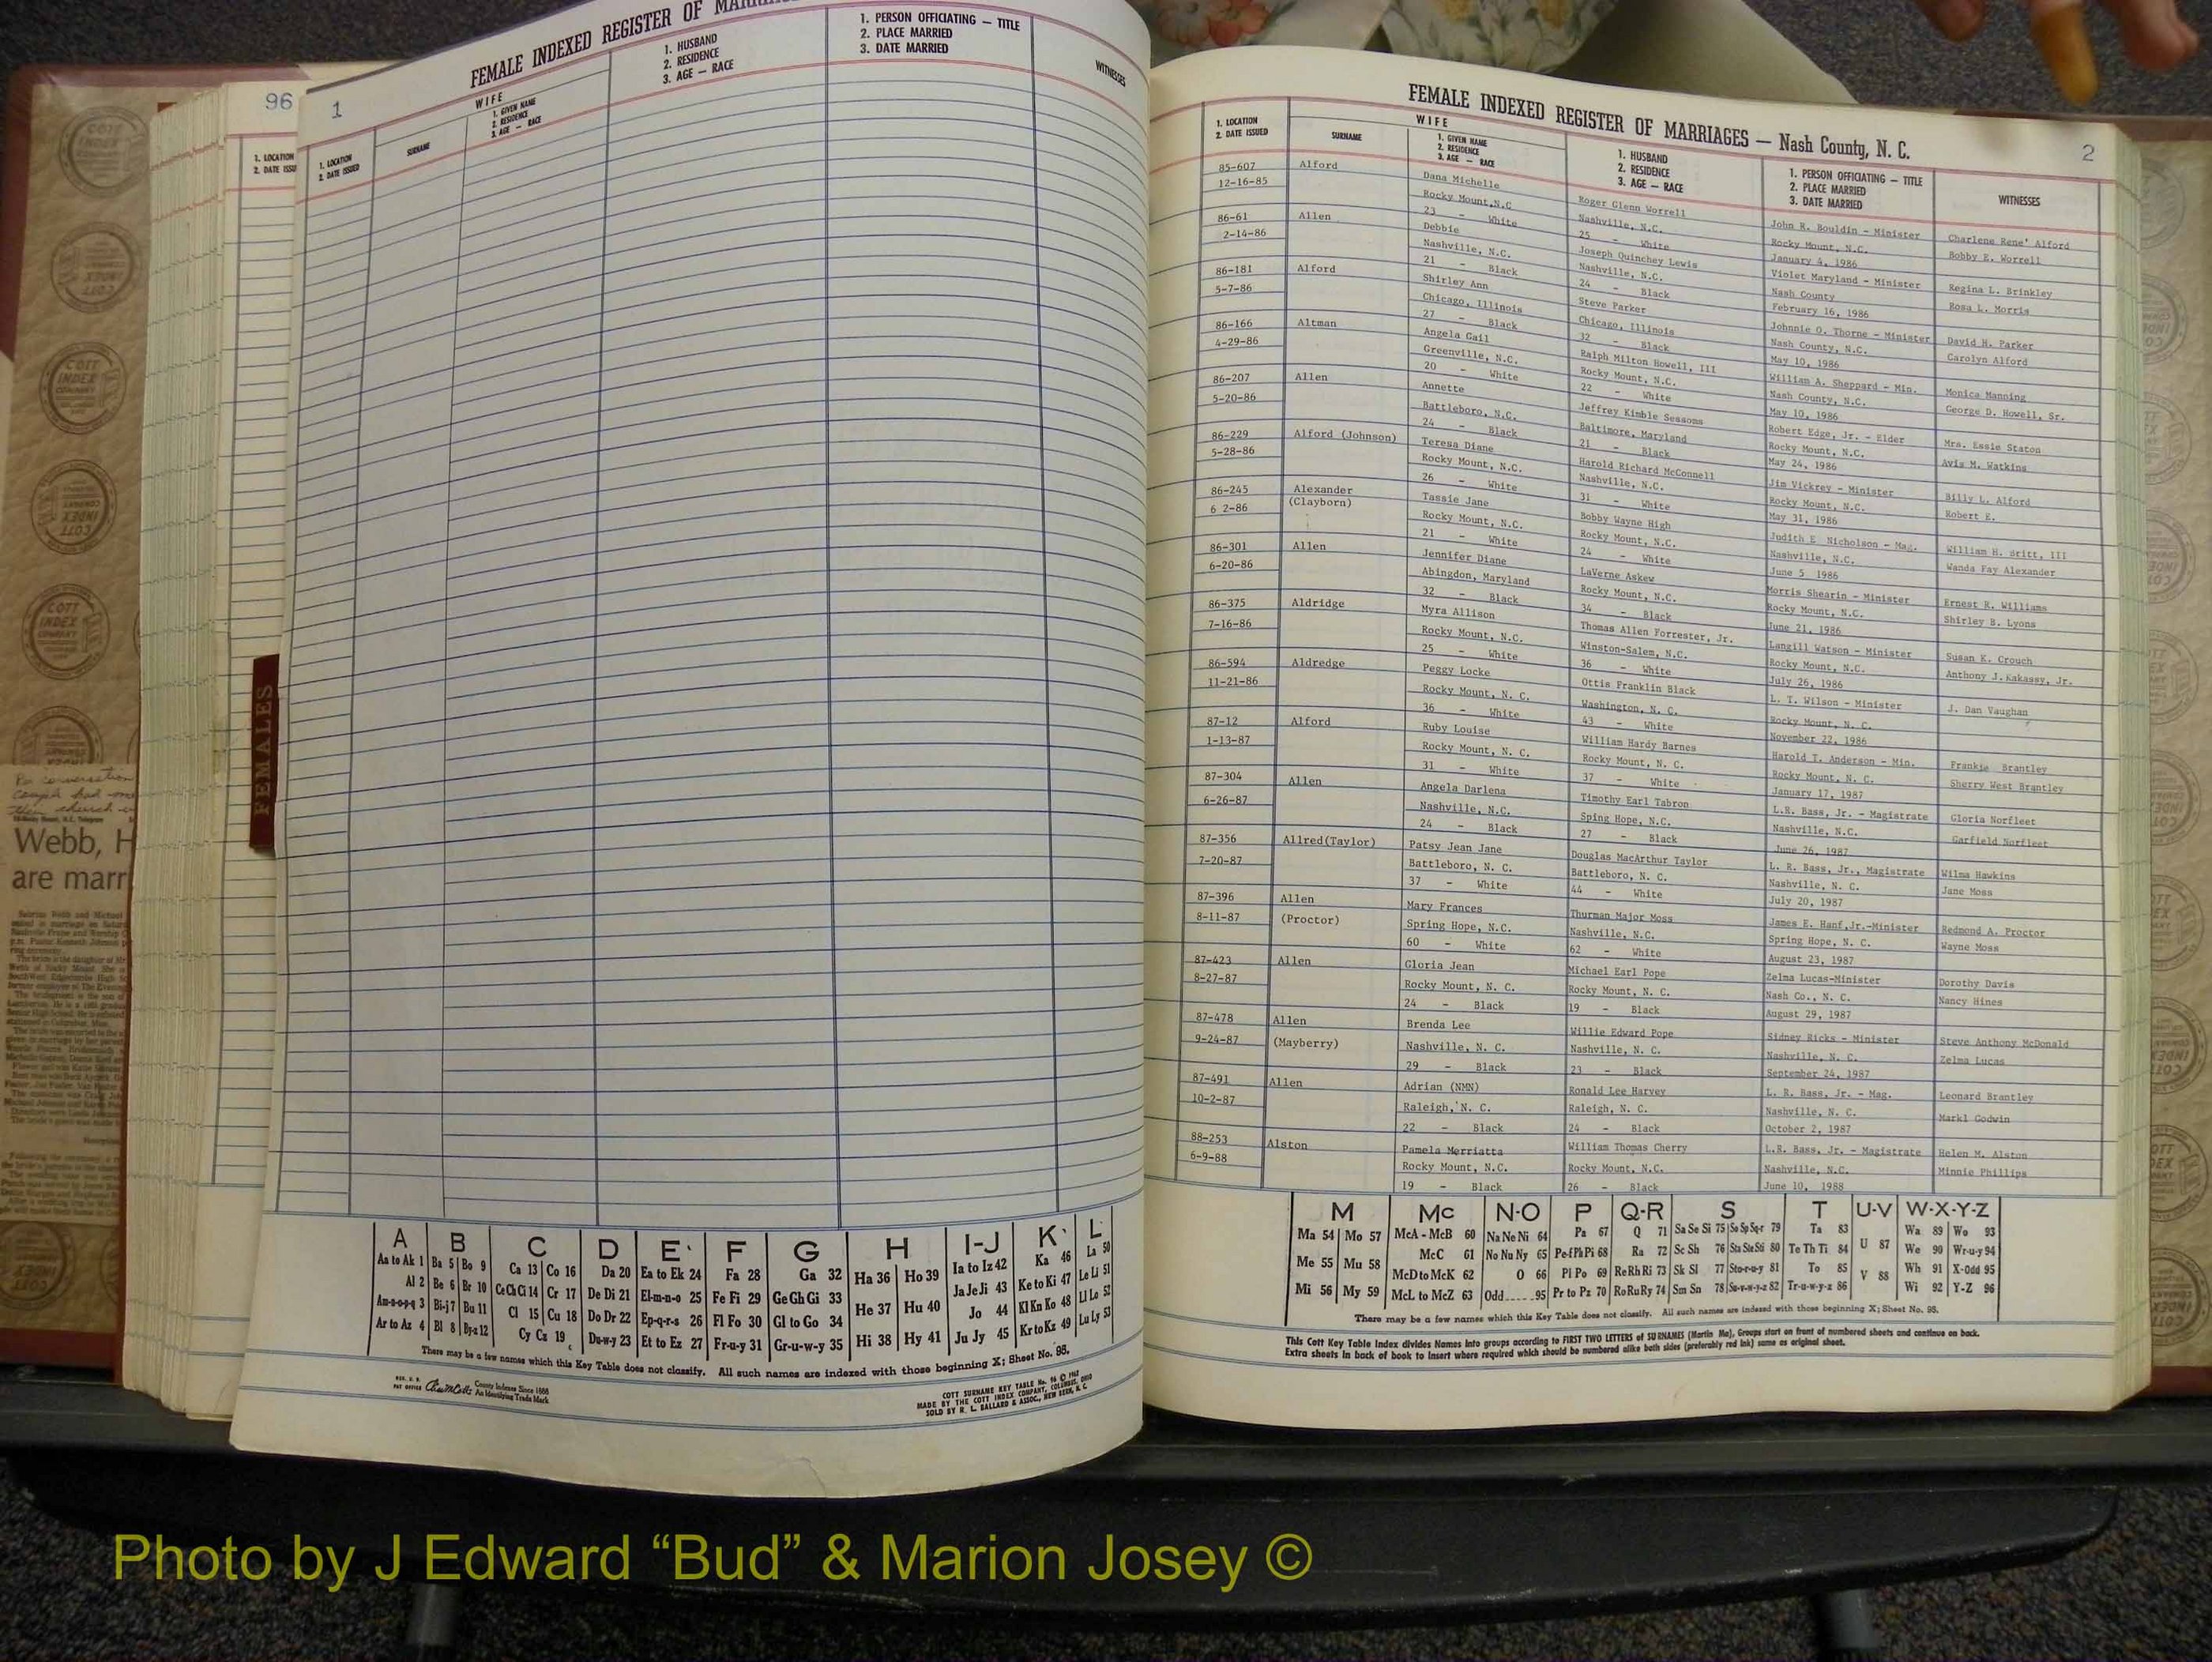 96
1. LOCATION
2. DATE ISSU
FEMALES
Webb, H
are marr
1
FEMALE INDEXED REGISTER OF MARRIA
1. LOCATION
2. DATE ISSUED
SURNAME
WIFE
1. GIVEN NAME
2. RESIDENCE
3. AGE — RACE
1. HUSBAND
2. RESIDENCE
3. AGE — RACE
1. PERSON OFFICIATING — TITLE
2. PLACE MARRIED
3. DATE MARRIED
WITNESSES
A B C D E F G H I-J K L
Aa to Ak 1 Ba 5 Bo 9 Ca 13 Co 16 Da 20 Ea to Ek 24 Fa 28 Ga 32 Ha 36 Ho 39 Ia to Iz 42 Ka 46 La 50
Al 2 Be 6 Br 10 Ce Ch Ci 14 Cr 17 De Di 21 El-m-n-o 25 Fe Fi 29 Ge Gh Gi 33 He 37 Hu 40 Ja Je Ji 43 Ke to Ki 47 Le Li 51
Am-n-o-p-q 3 Bi-j 7 Bu 11 Cl 15 Cu 18 Do Dr 22 Ep-q-r-s 26 Fl Fo 30 Gl to Go 34 Jo 44 Kl Kn Ko 48 Ll Lo 52
Ar to Az 4 Bl 8 By-z 12 Cy Cz 19 Du-w-y 23 Et to Ez 27 Fr-u-y 31 Gr-u-w-y 35 Hi 38 Hy 41 Ju Jy 45 Kr to Kz 49 Lu Ly 53
There may be a few names which this Key Table does not classify. All such names are indexed with those beginning X; Sheet No. 95.
County Indexes Since 1888
An Identifying Trade Mark
COTT SURNAME KEY TABLE No. 96 © 1962
MADE BY THE COTT INDEX COMPANY, COLUMBUS, OHIO
SOLD BY R. L. BALLARD & ASSOC., NEW BERN, N. C.
FEMALE INDEXED REGISTER OF MARRIAGES — Nash County, N. C.
2
1. LOCATION
2. DATE ISSUED
WIFE
SURNAME
1. GIVEN NAME
2. RESIDENCE
3. AGE — RACE
1. HUSBAND
2. RESIDENCE
3. AGE — RACE
1. PERSON OFFICIATING — TITLE
2. PLACE MARRIED
3. DATE MARRIED
WITNESSES
85-607 Alford Dana Michelle Roger Glenn Worrell John R. Bouldin - Minister Charlene Rene' Alford
12-16-85 Rocky Mount,N.C Nashville, N.C. Rocky Mount, N.C. Bobby E. Worrell
23 - White 25 - White January 4, 1986
86-61 Allen Debbie Joseph Quinchey Lewis Violet Maryland - Minister Regina L. Brinkley
2-14-86 Nashville, N.C. Nashville, N.C. Nash County Rosa L. Morris
21 - Black 24 - Black February 16, 1986
86-181 Alford Shirley Ann Steve Parker Johnnie O. Thorne - Minister David H. Parker
5-7-86 Chicago, Illinois Chicago, Illinois Nash County, N.C. Carolyn Alford
27 - Black 32 - Black May 10, 1986
86-166 Altman Angela Gail Ralph Milton Howell, III William A. Sheppard - Min. Monica Manning
4-29-86 Greenville, N.C. Rocky Mount, N.C. Nash County, N.C. George D. Howell, Sr.
20 - White 22 - White May 10, 1986
86-207 Allen Annette Jeffrey Kimble Sessoms Robert Edge, Jr. - Elder Mrs. Essie Staton
5-20-86 Battleboro, N.C. Baltimore, Maryland Rocky Mount, N.C. Avis M. Watkins
24 - Black 21 - Black May 24, 1986
86-229 Alford (Johnson) Teresa Diane Harold Richard McConnell Jim Vickrey - Minister Billy L. Alford
5-28-86 Rocky Mount, N.C. Nashville, N.C. Rocky Mount, N.C. Robert E.
26 - White 31 - White May 31, 1986
86-245 Alexander Tassie Jane Bobby Wayne High Judith E Nicholson - Mag. William H. Britt, III
6 2-86 (Clayborn) Rocky Mount, N.C. Rocky Mount, N.C. Nashville, N.C. Wanda Fay Alexander
21 - White 24 - White June 5 1986
86-301 Allen Jennifer Diane LaVerne Askew Morris Shearin - Minister Ernest R. Williams
6-20-86 Abingdon, Maryland Rocky Mount, N.C. Rocky Mount, N.C. Shirley B. Lyons
32 - Black 34 - Black June 21, 1986
86-375 Aldridge Myra Allison Thomas Allen Forrester, Jr. Langill Watson - Minister Susan K. Crouch
7-16-86 Rocky Mount, N.C. Winston-Salem, N.C. Rocky Mount, N.C. Anthony J. Kakassy, Jr.
25 - White 36 - White July 26, 1986
86-594 Aldredge Peggy Locke Ottis Franklin Black L. T. Wilson - Minister J. Dan Vaughan
11-21-86 Rocky Mount, N. C. Washington, N. C. Rocky Mount, N. C.
36 - White 43 - White November 22, 1986
87-12 Alford Ruby Louise William Hardy Barnes Harold T. Anderson - Min. Frankie Brantley
1-13-87 Rocky Mount, N. C. Rocky Mount, N. C. Rocky Mount, N. C. Sherry West Brantley
31 - White 37 - White January 17, 1987
87-304 Allen Angela Darlena Timothy Earl Tabron L.R. Bass, Jr. - Magistrate Gloria Norfleet
6-26-87 Nashville, N.C. Sping Hope, N.C. Nashville, N.C. Garfield Norfleet
24 - Black 27 - Black June 26, 1987
87-356 Allred(Taylor) Patsy Jean Jane Douglas MacArthur Taylor L. R. Bass, Jr., Magistrate Wilma Hawkins
7-20-87 Battleboro, N. C. Battleboro, N. C. Nashville, N. C. Jane Moss
37 - White 44 - White July 20, 1987
87-396 Allen Mary Frances Thurman Major Moss James E. Hanf,Jr.-Minister Redmond A. Proctor
8-11-87 (Proctor) Spring Hope, N.C. Nashville, N.C. Spring Hope, N. C. Wayne Moss
60 - White 62 - White August 23, 1987
87-423 Allen Gloria Jean Michael Earl Pope Zelma Lucas-Minister Dorothy Davis
8-27-87 Rocky Mount, N. C. Rocky Mount, N. C. Nash Co., N. C. Nancy Hines
24 - Black 19 - Black August 29, 1987
87-478 Allen Brenda Lee Willie Edward Pope Sidney Ricks - Minister Steve Anthony McDonald
9-24-87 (Mayberry) Nashville, N. C. Nashville, N. C. Nashville, N. C. Zelma Lucas
29 - Black 23 - Black September 24, 1987
87-491 Allen Adrian (NMN) Ronald Lee Harvey L. R. Bass, Jr. - Mag. Leonard Brantley
10-2-87 Raleigh, N. C. Raleigh, N. C. Nashville, N. C. Markl Godwin
22 - Black 24 - Black October 2, 1987
88-253 Alston Pamela Merriatta William Thomas Cherry L.R. Bass, Jr. - Magistrate Helen M. Alston
6-9-88 Rocky Mount, N.C. Rocky Mount, N.C. Nashville, N.C. Minnie Phillips
19 - Black 26 - Black June 10, 1988
M Mc N-O P Q-R S T U-V W-X-Y-Z
Ma 54 Mo 57 McA - McB 60 Na Ne Ni 64 Pa 67 Q 71 Sa Se Si 75 So Sp Sq-r 79 Ta 83 U 87 Wa 89 Wo 93
Me 55 Mu 58 McC 61 No Nu Ny 65 Pe-f Ph Pi 68 Ra 72 Sc Sh 76 Sta Ste Sti 80 Te Th Ti 84 We 90 Wr-u-y 94
McD to McK 62 O 66 Pl Po 69 Re Rh Ri 73 Sk Sl 77 Sto-r-u-y 81 To 85 V 88 Wh 91 X-Odd 95
Mi 56 My 59 McL to McZ 63 Odd......95 Pr to Pz 70 Ro Ru Ry 74 Sm Sn 78 Su-v-w-y-z 82 Tr-u-w-y-z 86 Wi 92 Y-Z 96
There may be a few names which this Key Table does not classify. All such names are indexed with those beginning X; Sheet No. 95.
This Cott Key Table Index divides Names into groups according to FIRST TWO LETTERS of SURNAMES (Martin Ma), Groups start on front of numbered sheets and continue on back.
Extra sheets in back of book to insert where required which should be numbered alike both sides (preferably red ink) same as original sheet.
Photo by J Edward “Bud” & Marion Josey ©